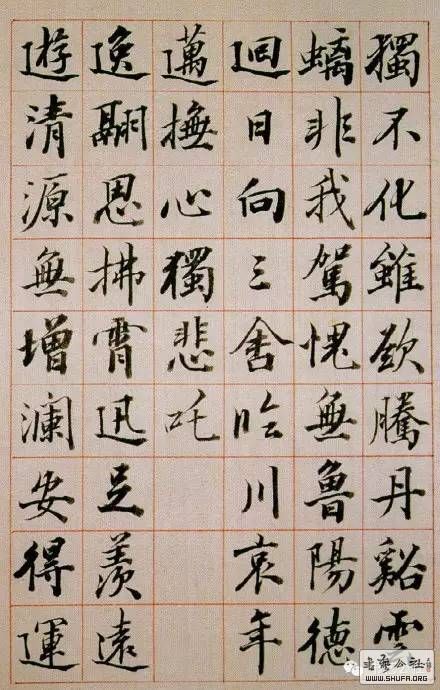 獨不化雖欲騰丹谿雲
螭非我駕愧無魯陽德
迴日向三舍臨川哀年
邁撫心獨悲吒
逸翮思拂霄迅足羨遠
遊清源無增瀾安得運
书艺公社
WWW.SHUFA.ORG